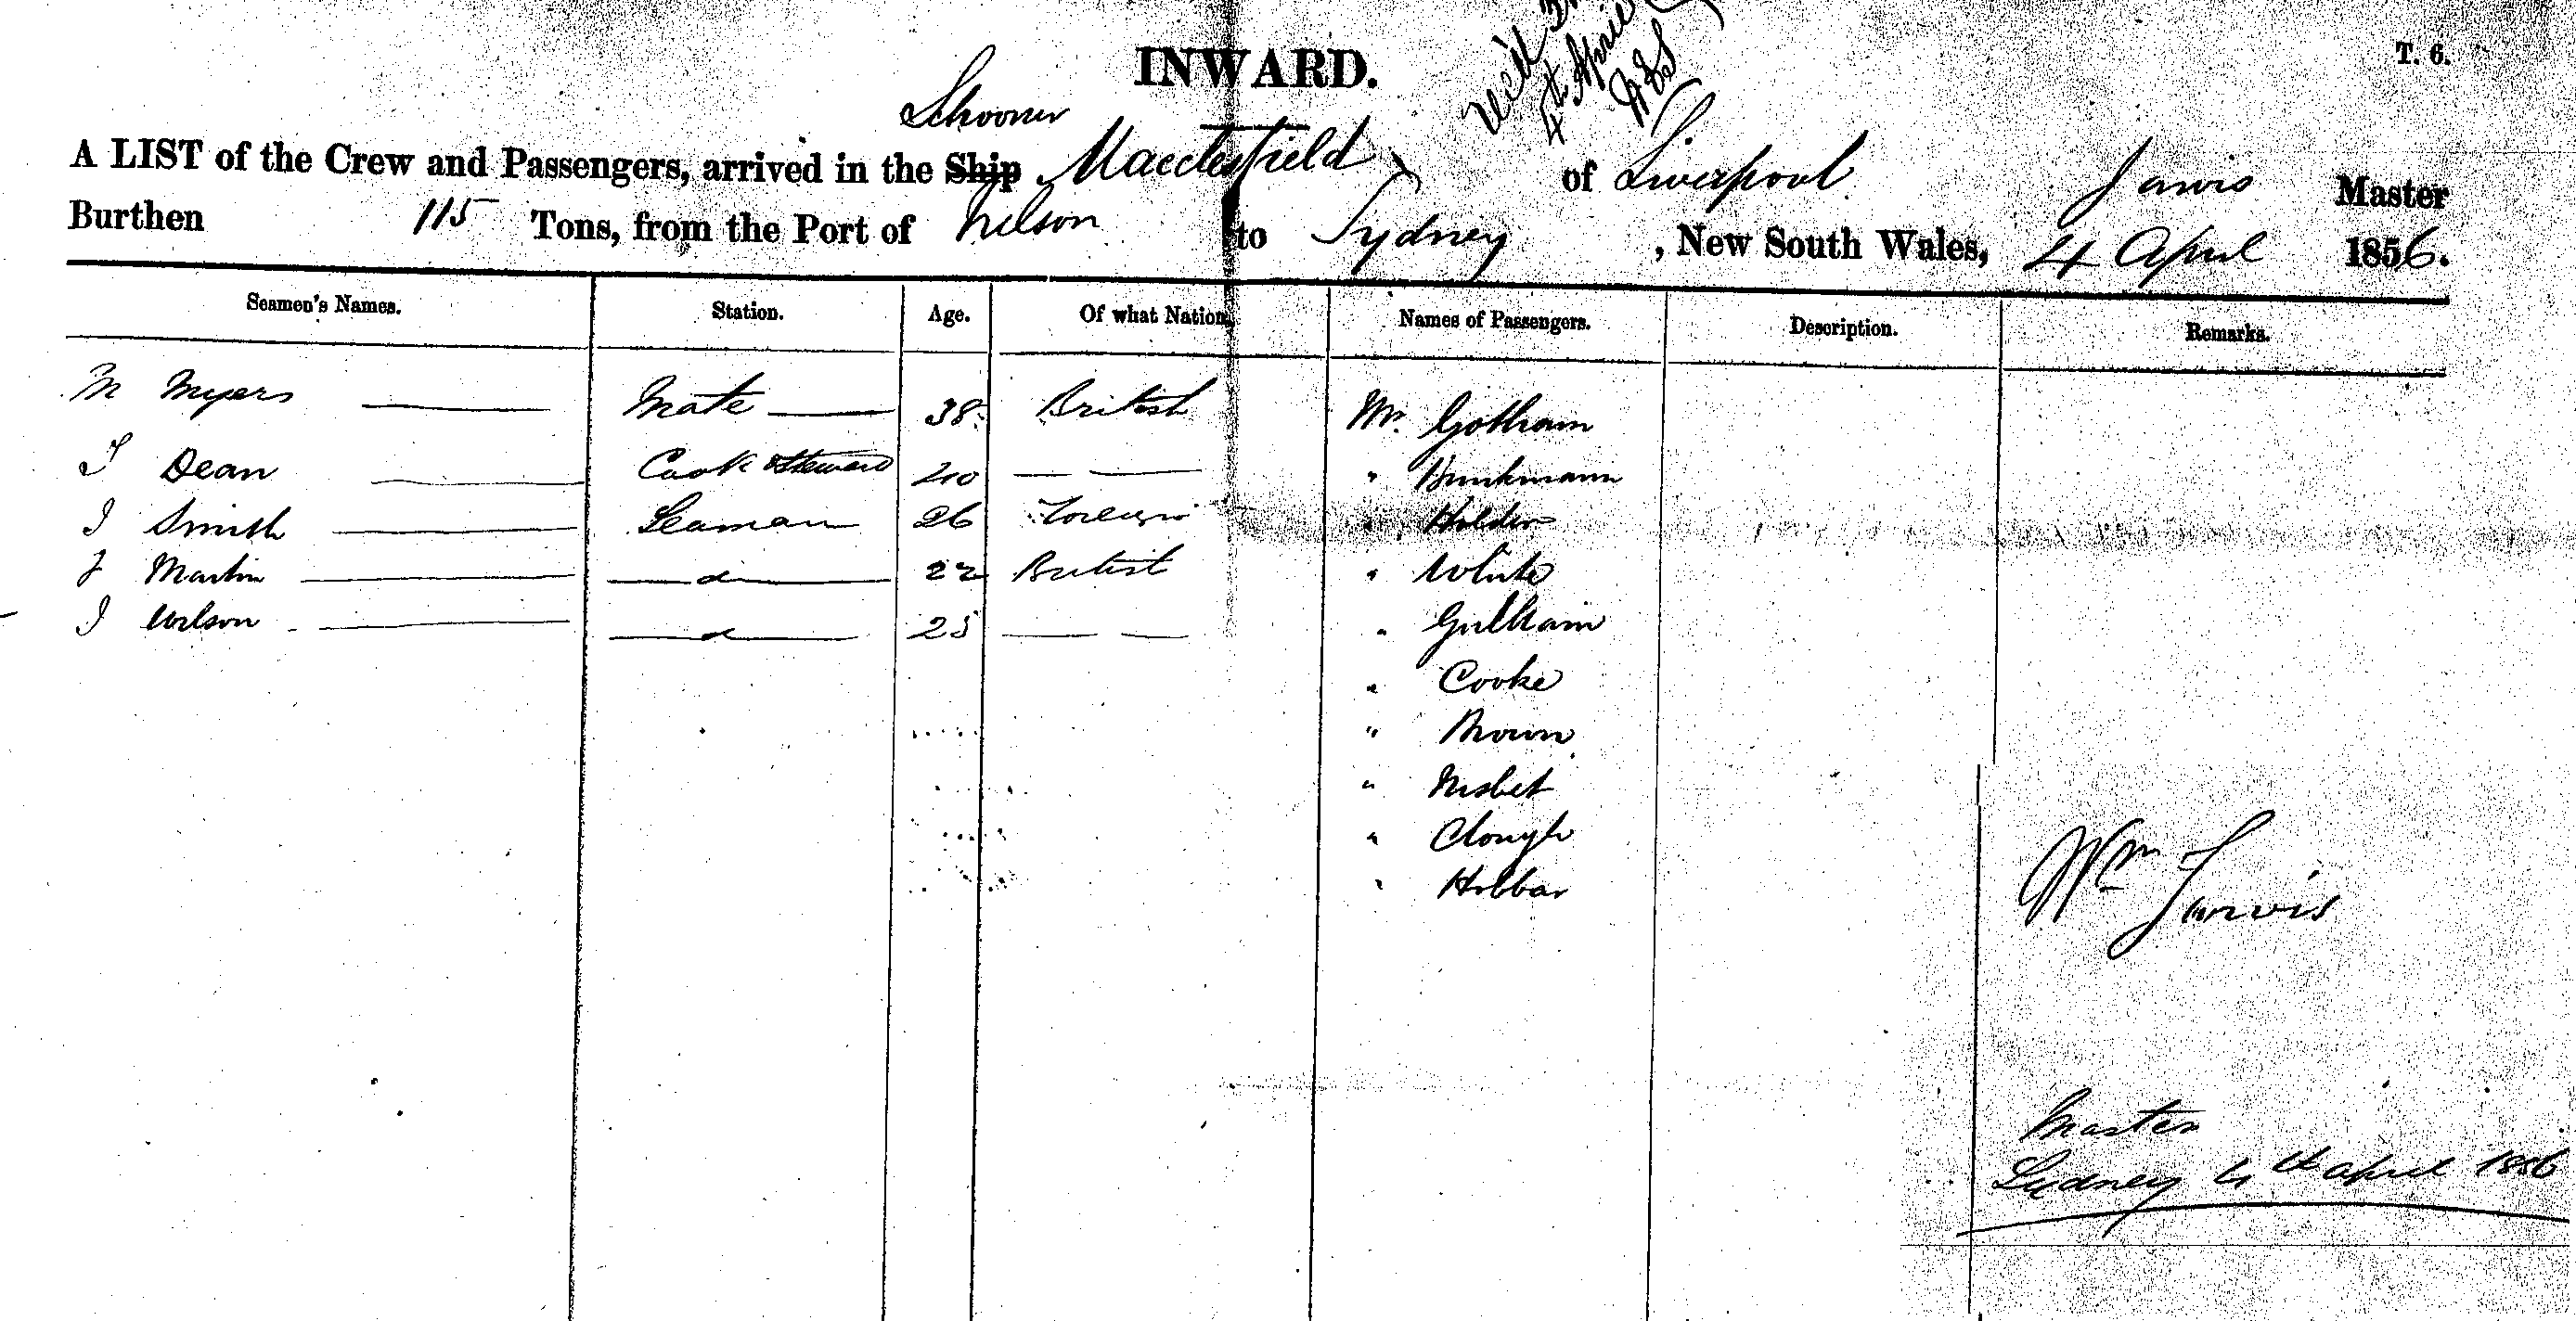 INWARD.
T. 6.
4th April
Schooner
A LIST of the Crew and Passengers, arrived in the Ship Macclesfield, of Liverpool Jarvis Master
Burthen 115 Tons, from the Port of Nelson to Sydney, New South Wales, 4 April 1856.
Seamen's Names. Station. Age. Of what Nation. Names of Passengers. Description. Remarks.
M Myers — Mate — 38 British Mr. Gotham
J Dean — Cook & Steward 40 — — "
J Smith — Seaman 26 Foreign " Holder
J Martin — d — 22 British " White
J Wilson — d — 25 — — "
" Cooke
" Brown
" Nisbet
" Clough
" Hibbar
Wm Jarvis
Master
Sydney 4th April 1856